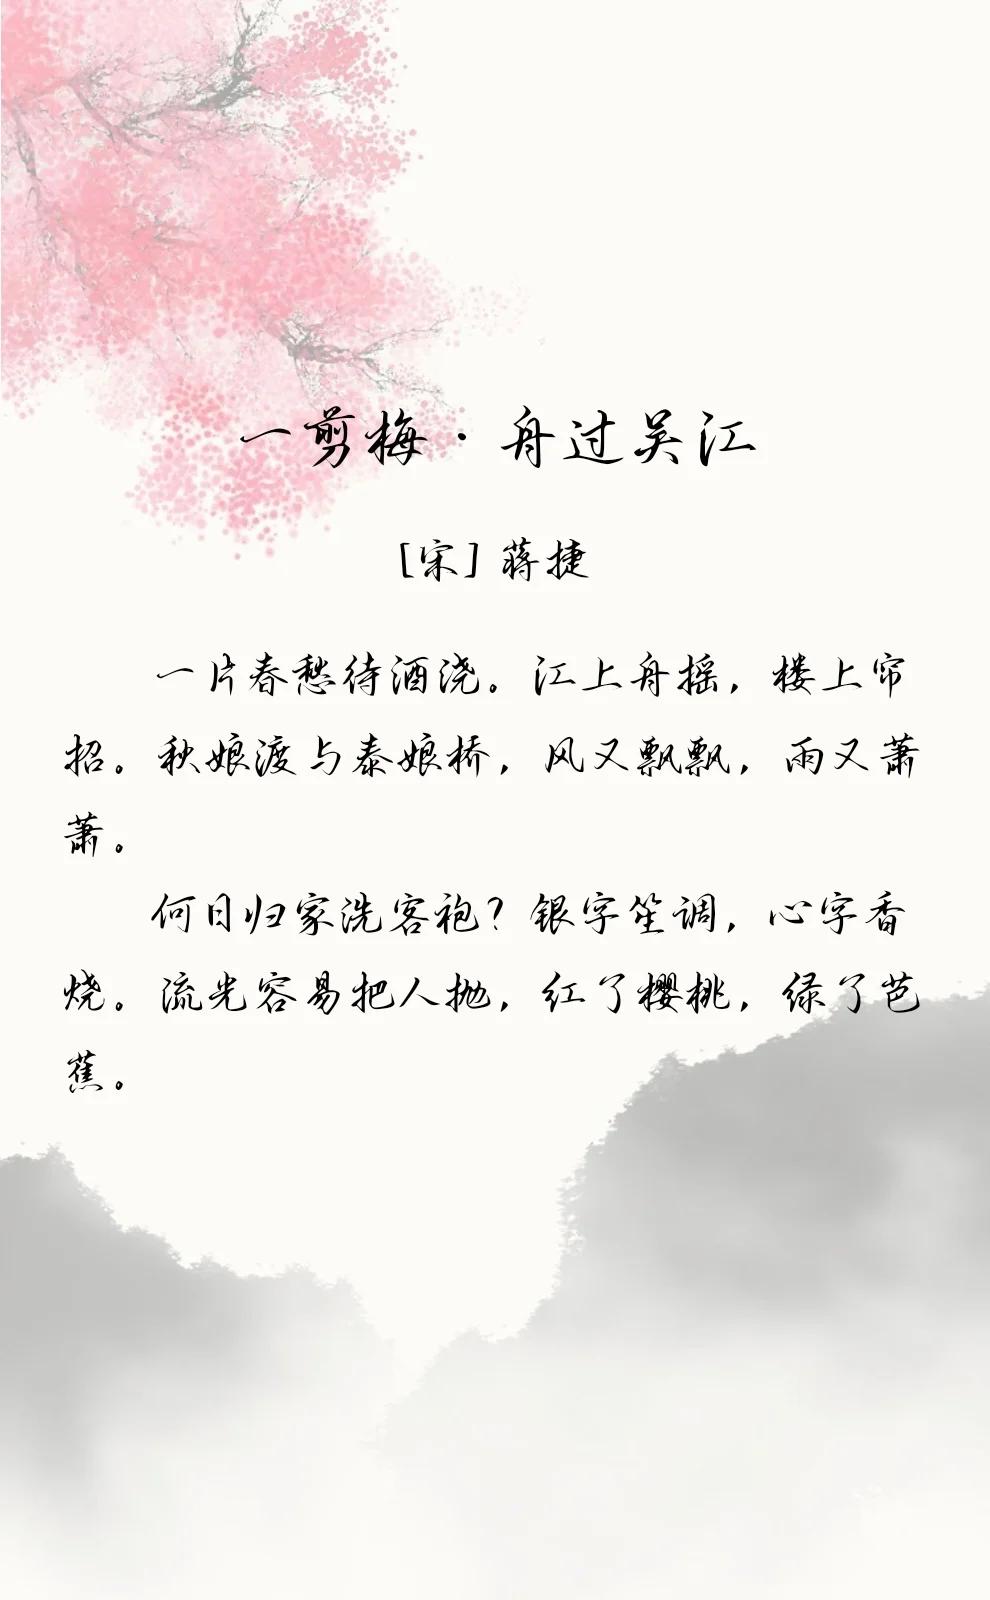 一剪梅·舟过吴江
[宋] 蒋捷
一片春愁待酒浇。江上舟摇，楼上帘
招。秋娘渡与泰娘桥，风又飘飘，雨又萧
萧。
何日归家洗客袍？银字笙调，心字香
烧。流光容易把人抛，红了樱桃，绿了芭
蕉。